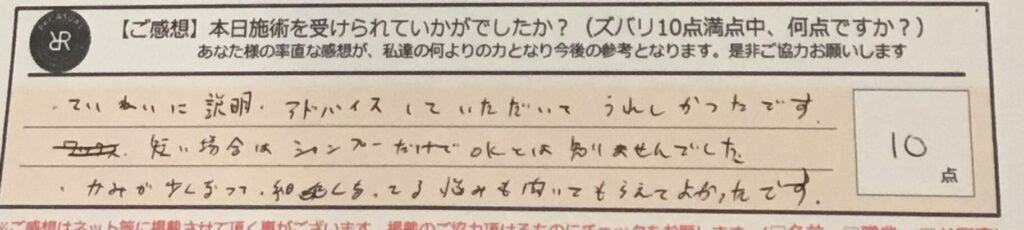 【ご感想】本日施術を受けられていかがでしたか？（ズバリ10点満点中、何点ですか？）
あなた様の率直な感想が、私達の何よりの力となり今後の参考となります。是非ご協力お願いします
・ていねいに説明・アドバイスしていただいてうれしかったです。
短い場合はシャンプーだけでOKとは知りませんでした。
10
点
・かみが少なって、細くなってる悩みも聞いてもらえてよかったです。
※ご感想はネット等に掲載させて頂く事がございます。掲載のご協力頂けるものにチェックをお願いします